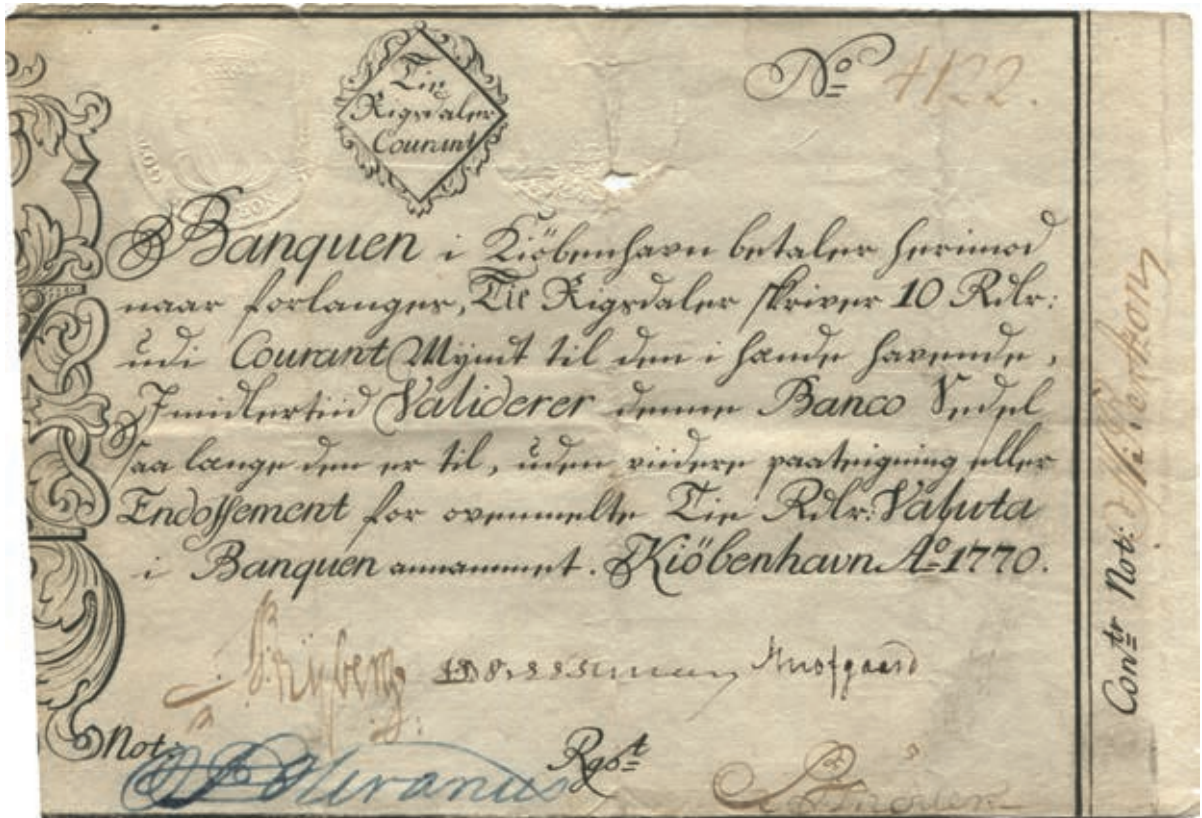 Tie
Rigsdaler
Courant
No 4122.
Banquen i Kiöbenhavn betaler herimod
naar forlanges, Tie Rigsdaler skriver 10 Rdlr:
udi Courant Mynt til den i hænde havende,
Imidlertiid Validerer denne Banco Sedel
saa længe den er til, uden viidere paateigning eller
Endossement for ovenmelte Tie Rdlr: Valuta
i Banquen annammet. Kiöbenhavn Ao 1770.
Not:
Rgst
Contr Not: